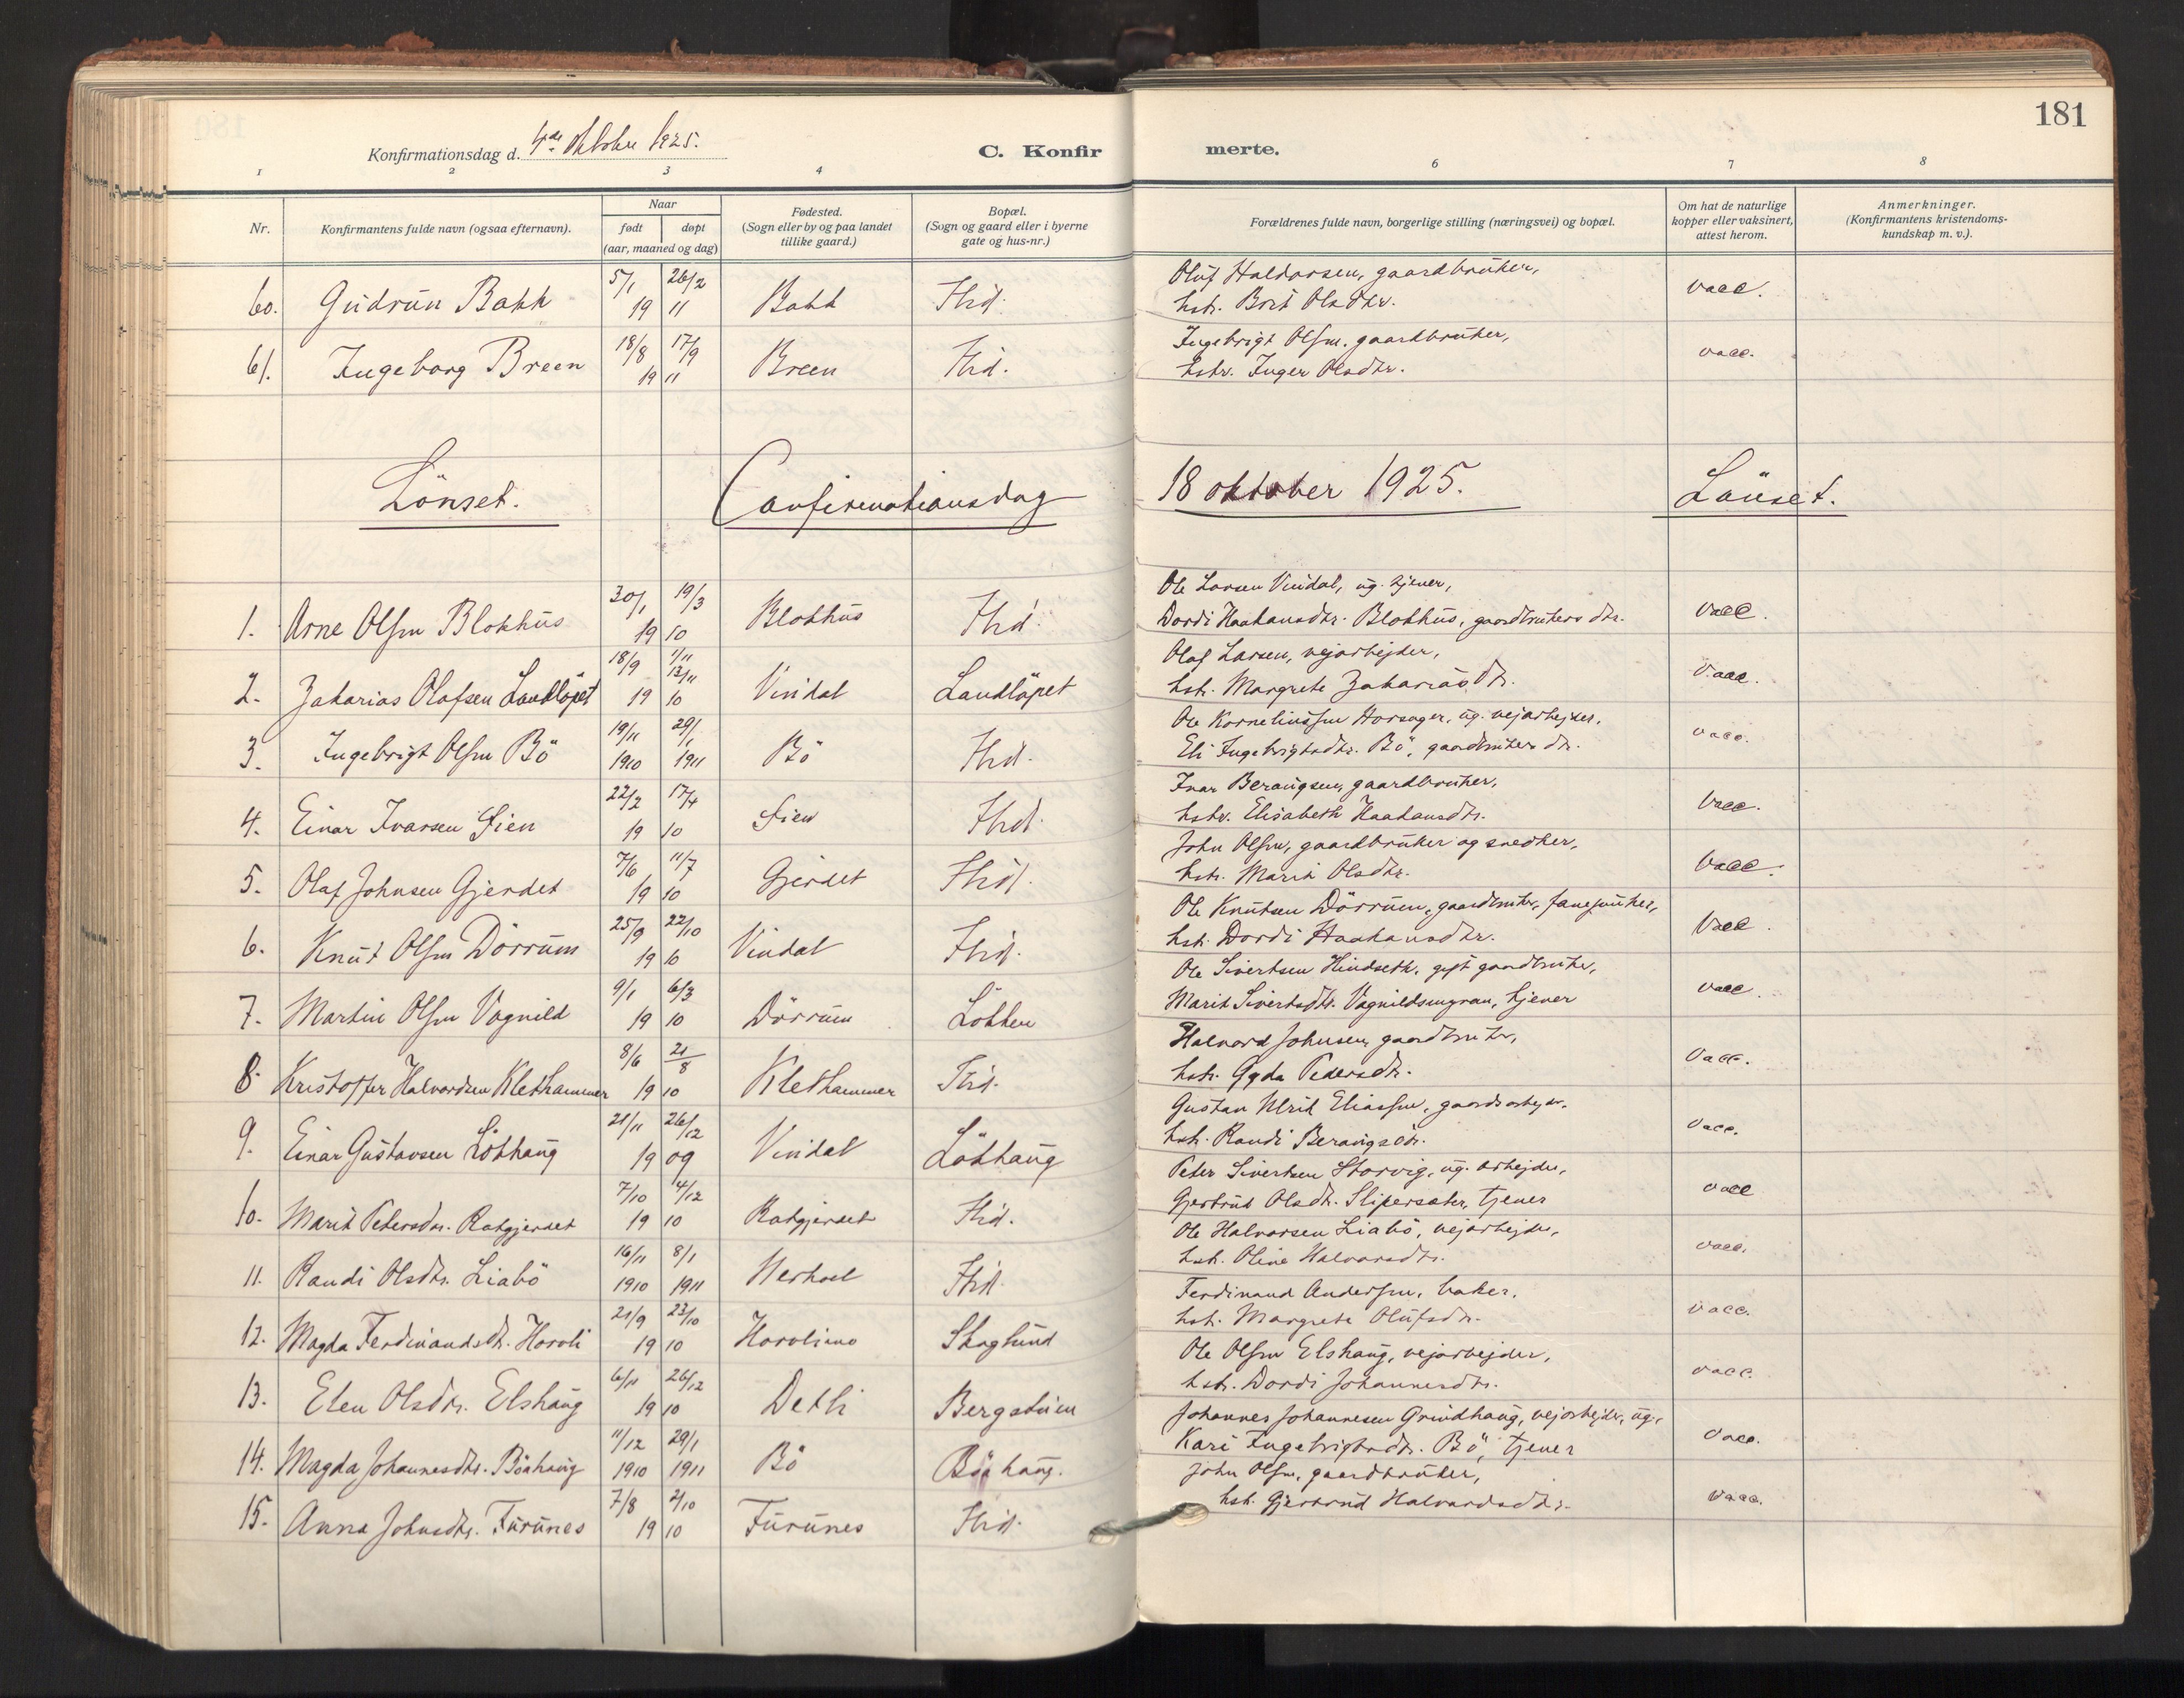 181
Konfirmationsdag d. 4de Oktober 1925.
C. Konfir merte.
1 2 3 4 6 7 8
Nr. Konfirmantens fulde navn (ogsaa efternavn). Naar født døpt (aar, maaned og dag) Fødested. (Sogn eller by og paa landet tillike gaard.) Bopæl. (Sogn og gaard eller i byerne gate og hus-nr.) Forældrenes fulde navn, borgerlige stilling (næringsvei) og bopæl. Om hat de naturlige kopper eller vaksinert, attest herom. Anmerkninger. (Konfirmantens kristendoms-kundskap m. v.).
60. Gudrun Bakk 5/1 26/2 19 11 Bakk Ibid. Oluf Haldorsen, gaardbruker, hstr. Brit Olsdtr. vacc.
61. Ingeborg Breen 18/8 17/9 19 11 Breen Ibid. Ingebrigt Olsen. gaardbruker, hstr. Inger Olsdtr. vacc.
Lönset. Confirmationsdag 18 oktober 1925. Lönset.
1. Arne Olsen Blokhus 30/1 19/3 19 10 Blokhus Ibid. Ole Larsen Vindal, ug. tjener, Dordi Haakansdtr. Blokhus, gaardbrukers dtr. vacc.
2. Zakarias Olafsen Landlöpet 18/9 1/11 13/11 19 10 Vindal Landlöpet Olaf Larsen, vejarbejder, hstr. Margrete Zakariasdtr. vacc.
3. Ingebrigt Olsen Bö 19/11 29/1 1910 1911 Bö Ibid. Ole Korneliussen Horsager, ug. vejarbejder, Eli Ingebrigtsdtr. Bö, gaardbrukers dtr. vacc.
4. Einar Ivarsen Sien 22/2 17/4 19 10 Sien Ibid. Ivar Beraugsen, gaardbruker, hstr. Elisabeth Haakansdtr. vacc.
5. Olaf Johnsen Gjerdet 7/6 11/7 19 10 Gjerdet Ibid. John Olsen, gaardbruker og snedker, hstr. Marit Olsdtr. vacc.
6. Knut Olsen Dörrum 25/9 22/10 19 10 Vindal Ibid. Ole Knutsen Dörrum, gaardbruker, fanejunker, hstr. Dordi Haakansdtr. vacc.
7. Martin Olsen Vognild 9/1 6/3 19 10 Dörrum Lökken Ole Sivertsen Hindseth, gift gaardbruker, Marit Sivertsdtr. Vognildsmyran, tjener vacc.
8. Kristoffer Halvordsen Klethammer 8/6 21/8 19 10 Klethammer Ibid. Halvord Johnsen, gaardbruker, hstr. Gyda Pedersdtr. vacc.
9. Einar Gustavsen Lökhaug 21/11 26/12 19 09 Vindal Lökhaug Gustav Ulrik Eliassen, gaardsarbejder, hstr. Randi Beraugsdtr. vacc.
10. Marit Petersdtr. Ratgjerdet 7/10 4/12 19 10 Ratgjerdet Ibid. Peter Sivertsen Storvig, ug. arbejder, Gjertrud Olsdtr. Slipersæter, tjener vacc
11. Randi Olsdtr. Liabö 16/11 8/1 1910 1911 Nerhoel Ibid. Ole Halvorsen Liabö, vejarbejder, hstr. Oline Halvorsdtr. vacc.
12. Magda Ferdinandsdtr. Horvli 21/9 23/10 19 10 Horvlimo Skoglund Ferdinand Andersen, baker, hstr. Margrete Olufsdtr. vacc.
13. Elen Olsdtr. Elshaug 6/11 26/12 19 10 Detli Bergstuen Ole Olsen Elshaug, vejarbejder, hstr. Dordi Johannesdtr. vacc.
14. Magda Johannesdtr. Böahaug 11/12 29/1 1910 1911 Bö Böahaug. Johannes Johannesen Grindhaug, vejarbejder, ug., Kari Ingebrigtsdtr. Bö, tjener vacc.
15. Anna Johnsdtr. Furunes 7/8 2/10 19 10 Furunes Ibid. John Olsen, gaardbruker, hstr. Gjertrud Halvardsdtr. vacc.